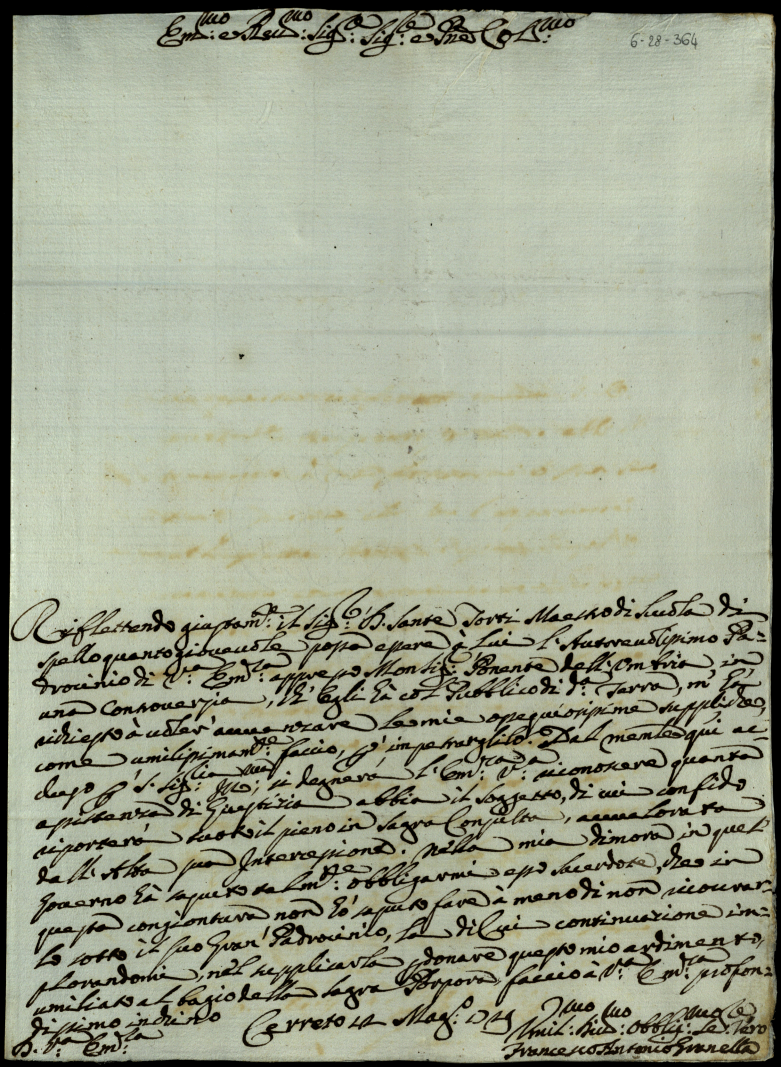 Em:mo e Reu:mo Sig:re Sig:re e Pne Col:mo
6-28-364
Riflettendo giustam:te il Sig:r D. Sante Torti Maestro di Scuola di
Spello quanto gioueuole possa essere à lui l'Autoreuolissimo Pa=
trocinio di V:ra Em:za appresso Monsig:r Ponente dell'Umbria in
una Controuersia, ch'egli hà col Publico di d:ta Terra, m'hà
richiesto à uoler' auuanzare le mie ossequiosissime suppliche,
come umilissimam:te faccio, p' impetrarglilo. Dal memle qui ac=
cluso si degnerà l'Em:za V:ra riconoscere quanta
assistenza di Giustizia abbia il soggetto, di cui confido
riporterà tutto il pieno in Sagra Consulta, auualorata
dall'Alta sua Intercessione. Nella mia dimora in quel
Gouerno hà saputo talm:te obbligarmi esso Sacerdote, che in
questa congiontura non hò saputo fare à meno di non ricourar=
lo sotto il suo Gran' Padrocinio, la di Cui continuazione im=
plorandomi, nel supplicarla p donare questo mio ardimento,
umiliato al bagio della Sagra Porpora faccio à V:ra Em:za profon=
dissimo inchino
Cerreto Mag:o
D. V:ra Em:za
Umil:mo Diu:mo Obblig:mo Se:re Vero
Francesco Antonio Granella